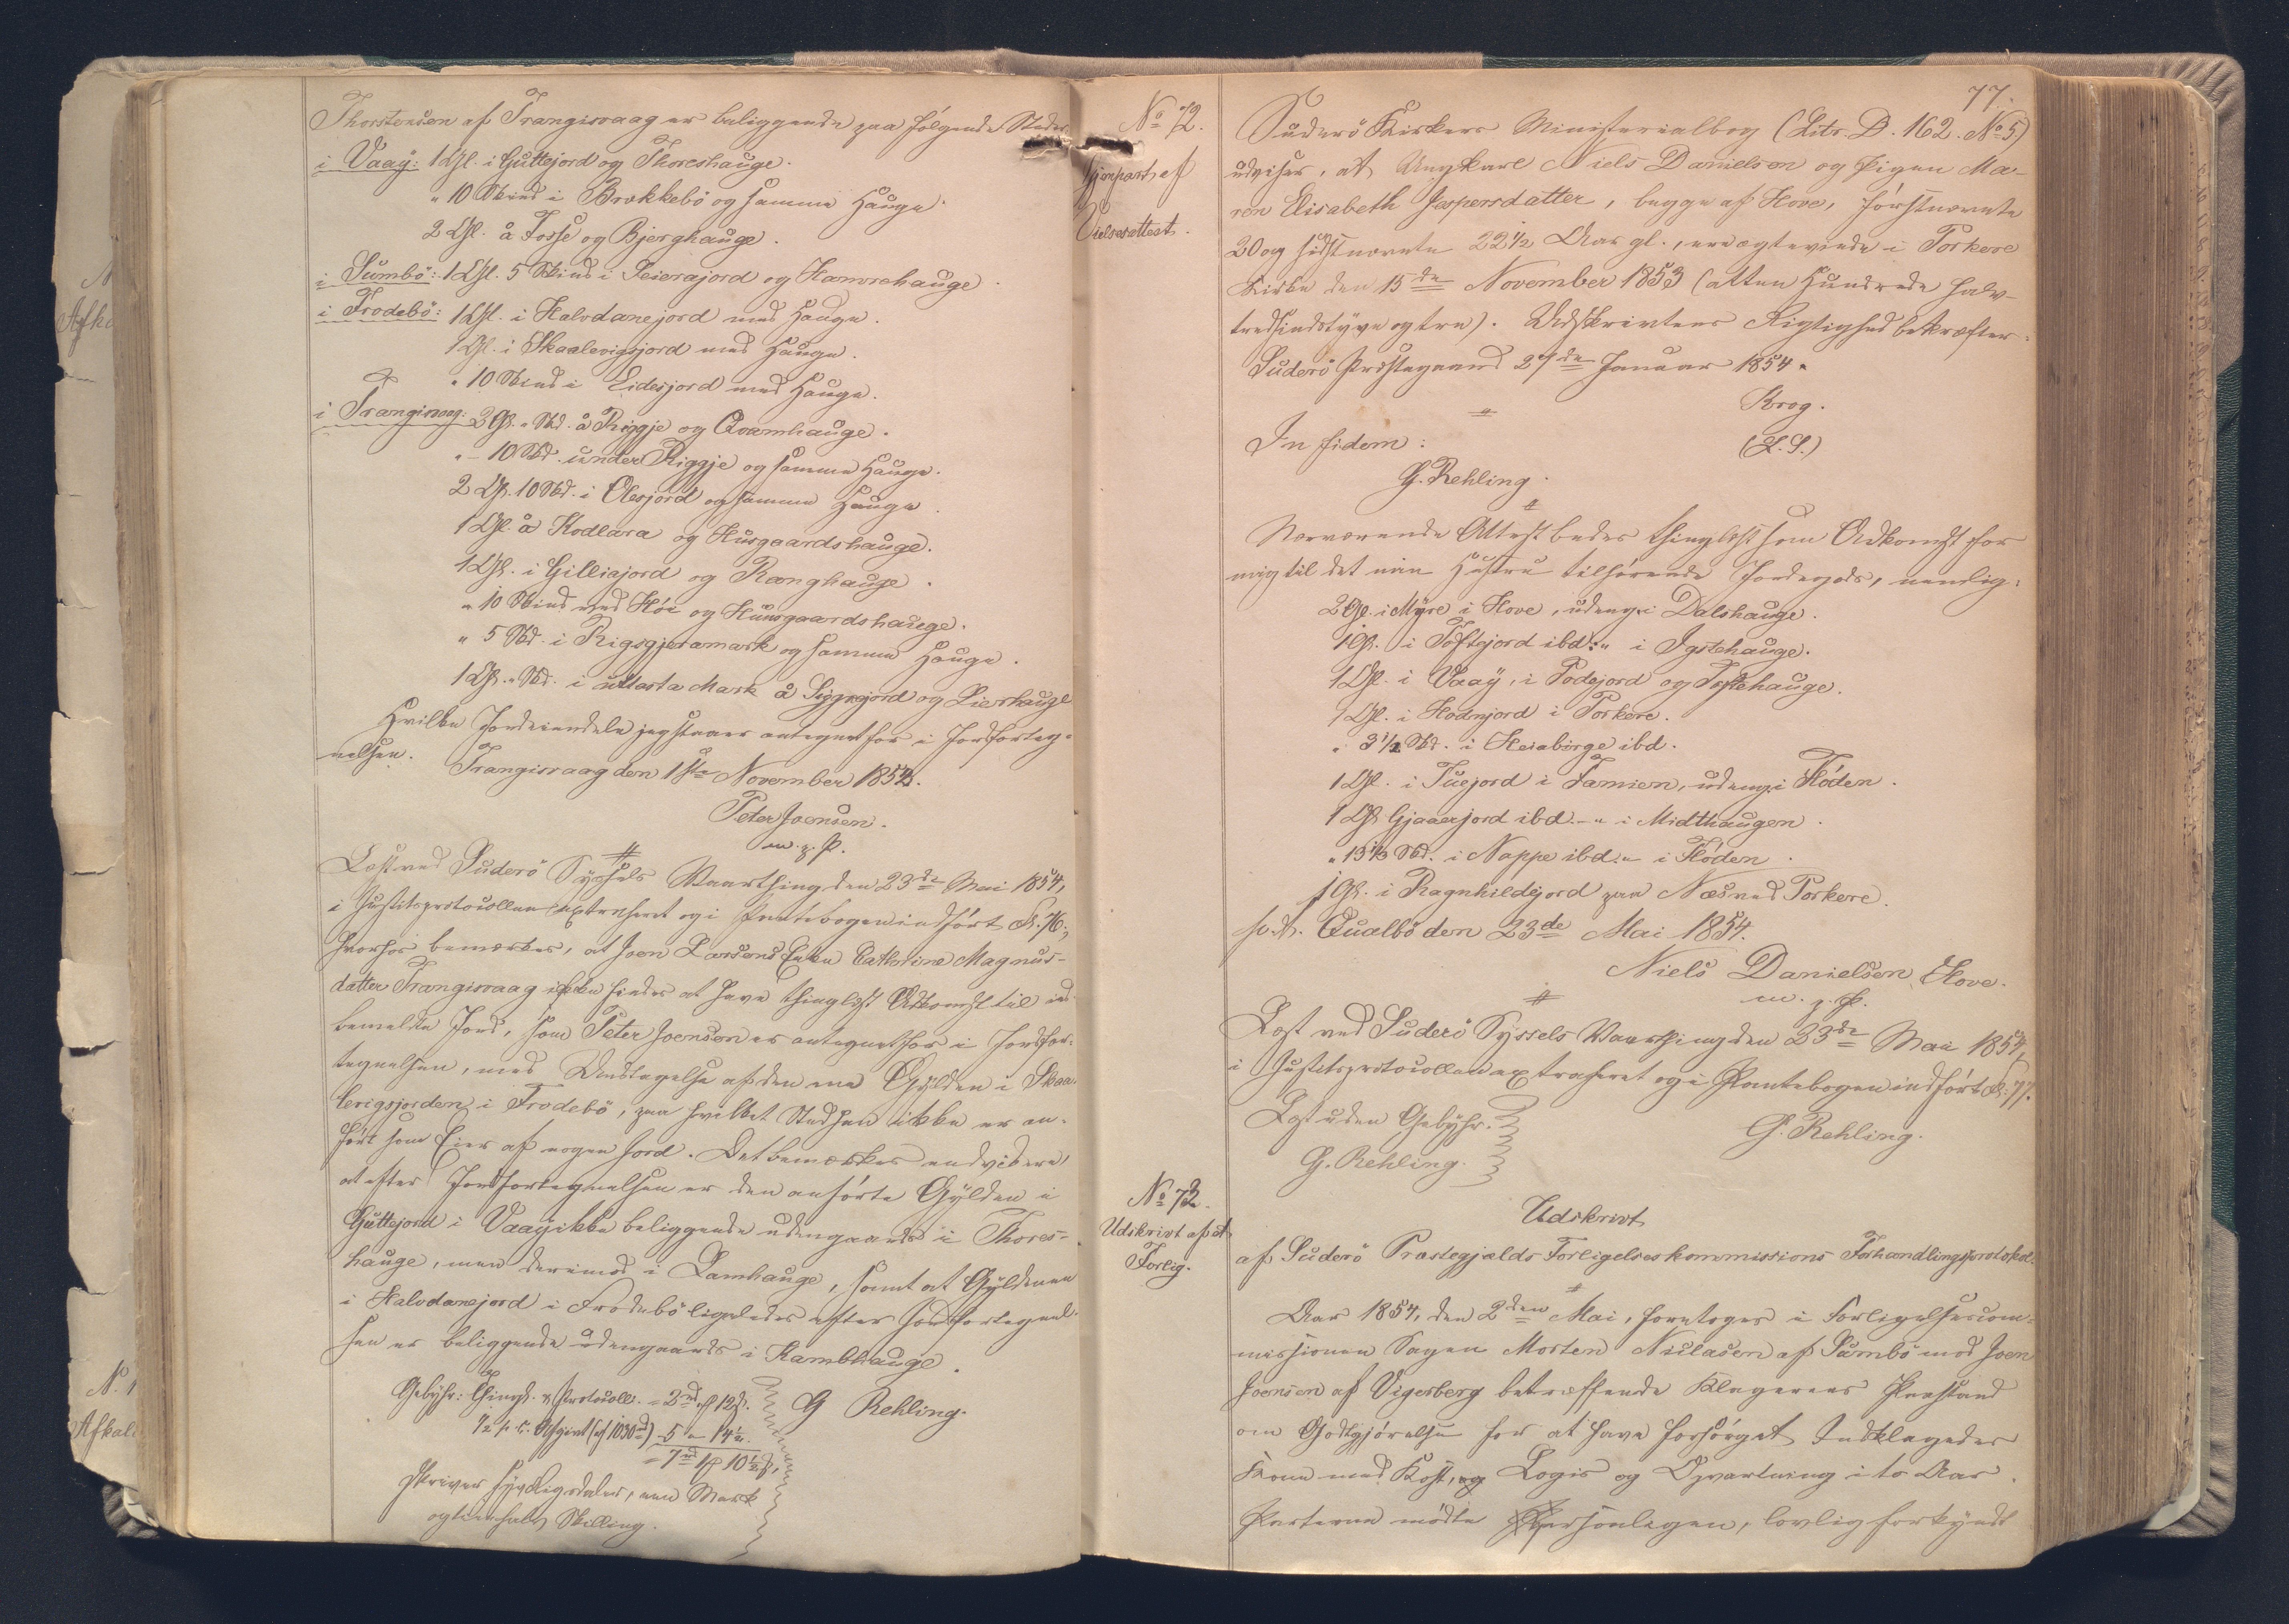 Thorstensen af Trangisvaag er beliggende paa følgende Steder
i Vaaÿ: 1 Gl. i Guttejord og Thoreshauge.
" 10 Skind i Brekkebö og samme Hauge.
2 Gl. å Fosse og Bjerghauge.
i Sumbö: 1 Gl. 5 Skind i Seierajord og Hamrehauge.
i Frodebö: 1 Gl. i Halvdanejord med Hauge.
1 Gl. i Skaalevigsjord med Hauge.
" 10 Skind i Eidesjord med Hauge.
i Trangisvaag: 2 Gl. " Skd. å Riggje og Qvamhauge.
" - 10 Skd. under Riggje og samme Hauge.
2 Gl. 10 Skd. i Olesjord og samme Hauge.
1 Gl. å Kodlara og Husgaardshauge.
1 Gl. i Gilliajord og Ranghauge.
" 10 Skind ved Höi og Huusgaardshauge.
" 5 Skd. i Rigsgjeramark og samme Hauge.
1 Gl. " Skd. i uttasta Mark å Siggajord og Lierhauge
Hvilke Jordeiendele jeg staaer antegnet for i Jordforteg-
nelsen.
Trangisvaag den 1ste November 1852.
Peter Joensen.
m. p. P.
Læst ved Suderö Syssels Vaarthing den 23de Mai 1854,
i Justitsprotocollen extraheret og i Pantebogen indført S. 76;
hvorhos bemærkes, at Joen Larsens Enke Cathrine Magnus-
datter Trangisvaag ikke findes at have thinglæst Adkomst til ind-
bemeldte Jord, som Peter Joensen er antegnet for i Jordfor-
tegnelsen, med Undtagelse af den ene Gylden i Skaa-
levigsjorden i Frodebö, paa hvilket Sted han ikke er an-
ført som Eier af nogen Jord. Det bemærkes endvidere,
at efter Jordfortegnelsen er den anførte Gylden i
Guttejord i Vaaÿ ikke beliggende udengaards i Thores-
hauge, men derimod i Lamhauge, samt at Gyldenen
i Halvdanejord i Frodebö ligeledes efter Jordfortegnel-
sen er beliggende udengaards i Kambhauge.
Gebyhr: Thingl. & Protocoll. = 2 rd. 12 ß.
½ p. C. Afgivt (af 1030 rd) - 5 - 14½
= 7 rd 1 10½ ß.
skriver syv Rigsdaler, een Mark
og tiendehalv Skilling.
G Rehling.
No 72.
Gjenpart af
Vielsesattest.
77.
Suderö Kirkers Ministerialbog (Litr. D. 162. No 5)
udviser, at Ungkarl Niels Danielsen og Pigen Ma-
ren Elisabeth Jespersdatter, begge af Hove, førstnævnte
20 og sidstnævnte 22½ Aar gl., ere ægteviede i Porkere
Kirke den 15de November 1853 (atten Hundrede halv-
tredsindstyve og tre). Udskrivtens Rigtighed bekræfter.
Suderö Præstegaard 27de Januar 1854.
Krog.
(L. S.)
In fidem:
G. Rehling.
Nærværende Attest bedes thinglæst som Adkomst for
mig til det min Hustru tilhørende Jordegods, nemlig:
2 Gl. i Mÿre i Hove, udeng. i Dalshauge.
1 Gl. i Toftejord ibd: " i Igstehauge.
1 Gl. i Vaaÿ, i Podejord og Tostehauge.
1 Gl. i Hodnjord i Porkere.
" 3½ Skd. i Heiabirge ibd.
1 Gl. i Tuejord i Famien, udeng. i Flöden.
1 Gl. Gjaaerjord ibd. - " i Midthaugen.
" 13⅓ Skd. i Nappe ibd. " i Flöden.
1 Gl. i Ragnhildejord paa Næs ved Porkere.
p. t. Qualbö den 23de Mai 1854.
Niels Danielsen, Hove.
m. p. P.
Læst ved Suderö Syssels Vaarthing den 23de Mai 1854,
i Justitsprotocollen extraheret og i Pantebogen indført S. 77.
Læst uden Gebyhr.
G. Rehling.
G. Rehling.
No 73.
Udskrivt af et
Forlig.
Udskrivt
af Suderö Præstegjælds Forligelseskommissions Forhandlingsprotokol.
Aar 1854, den 2den Mai, foretoges i Forligelsescom-
missionen Sagen Morten Niclasen af Sumbö mod Joen
Joensen af Vigerberg betræffende Klagerens Paastand
om Godtgjørelse for at have forsörget Indklagedes
Kone med Kost, og Logis og Opvartning i to Aar.
Parterne mödte personligen, lovlig forkyndt